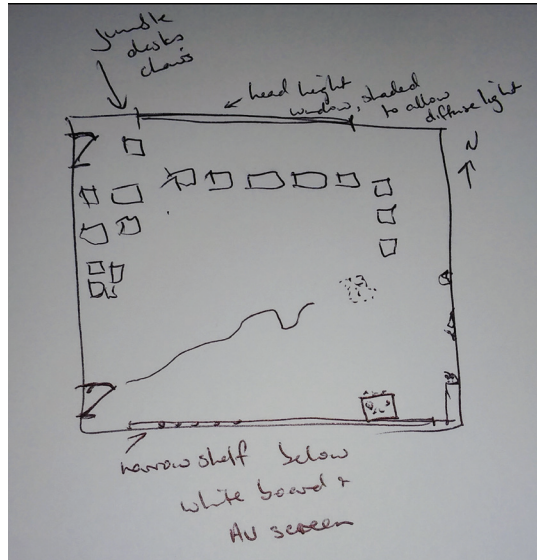 jumble
desks
chairs
head height
window, shaded
to allow
diffuse light
N
narrow shelf below
white board +
AV screen